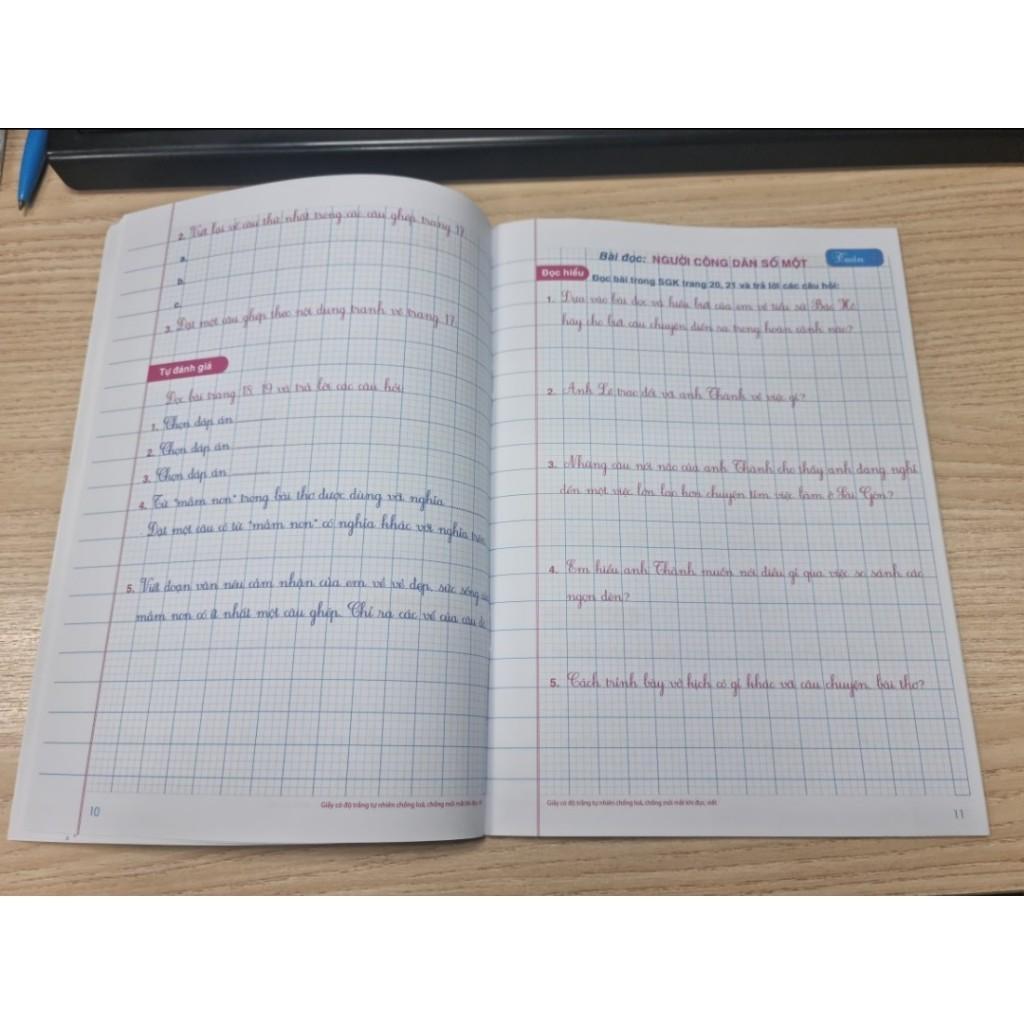 2. Viết lại vế câu thứ nhất trong các câu ghép trang 17.
a.
b.
c.
3. Đặt một câu ghép theo nội dung tranh vẽ trang 17.
Tự đánh giá
Đọc bài trang 18, 19 và trả lời các câu hỏi
1. Chọn đáp án
2. Chọn đáp án
3. Chọn đáp án
4. Từ "mầm non" trong bài thơ được dùng với nghĩa
Đặt một câu có từ "mầm non" có nghĩa khác với nghĩa trên.
5. Viết đoạn văn nêu cảm nhận của em về vẻ đẹp, sức sống
mầm non có ít nhất một câu ghép. Chỉ ra các vế của câu
Giấy có độ trắng tự nhiên chống loá, chống mỏi mắt khi đọc
10
Bài đọc: NGƯỜI CÔNG DÂN SỐ MỘT
Tuần
Đọc hiểu
Đọc bài trong SGK trang 20, 21 và trả lời các câu hỏi:
1. Dựa vào bài đọc và hiểu biết của em về tiểu sử Bác Hồ
hãy cho biết câu chuyện diễn ra trong hoàn cảnh nào?
2. Anh Lê trao đổi với anh Thành về việc gì?
3. Những câu nói nào của anh Thành cho thấy anh đang nghĩ
đến một việc lớn lao hơn chuyện tìm việc làm ở Sài Gòn?
4. Em hiểu anh Thành muốn nói điều gì qua việc so sánh các
ngọn đèn?
5. Cách trình bày vở kịch có gì khác với câu chuyện, bài thơ?
Giấy có độ trắng tự nhiên chống loá, chống mỏi mắt khi đọc, viết
11